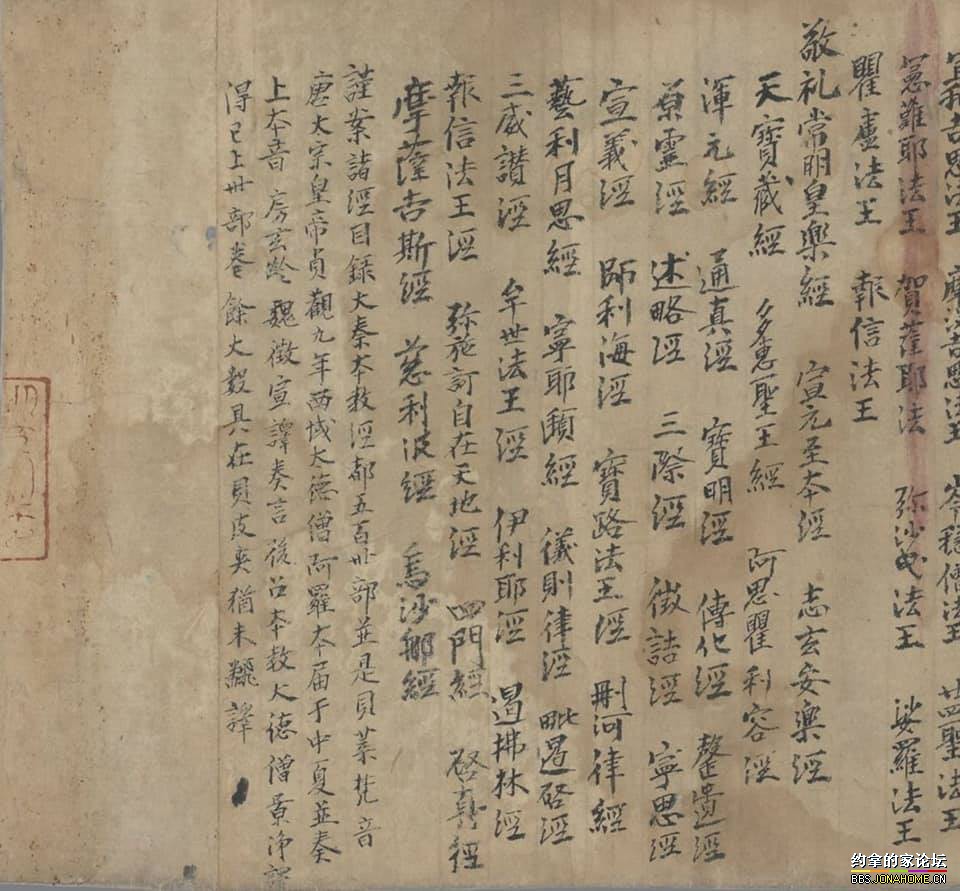 宜和吉思法王 摩沒吉思法王 岑穩僧法王 廿四聖法王
憲難耶法王 賀薩耶法 弥沙曳法王 娑羅法王
瞿盧法王 報信法王
敬礼常明皇樂經 宣元至本經 志玄安樂經
天寶藏經 多惠聖王經 阿思瞿利容經
渾元經 通真經 寶明經 傳化經 罄遺經
原靈經 述略經 三際經 徵詰經 寧思經
宣義經 師利海經 寶路法王經 刪河律經
藝利月思經 寧耶頥經 儀則律經 毗遏啓經
三威讚經 牟世法王經 伊利耶經 遏拂林經
報信法王經 弥施訶自在天地經 四門經 啓真經
摩薩吉斯經 慈利波經 烏沙郍經
謹案諸經目錄大秦本教經都五百卅部並是貝葉梵音
唐太宗皇帝貞觀九年西域太德僧阿羅本届于中夏並奏
上本音房玄齡魏徵宣譯奏言後召本教大德僧景淨譯
得已上卅部卷餘大數具在貝皮夾猶未飜譯
约拿的家论坛
BBS.JONAHOME.CN